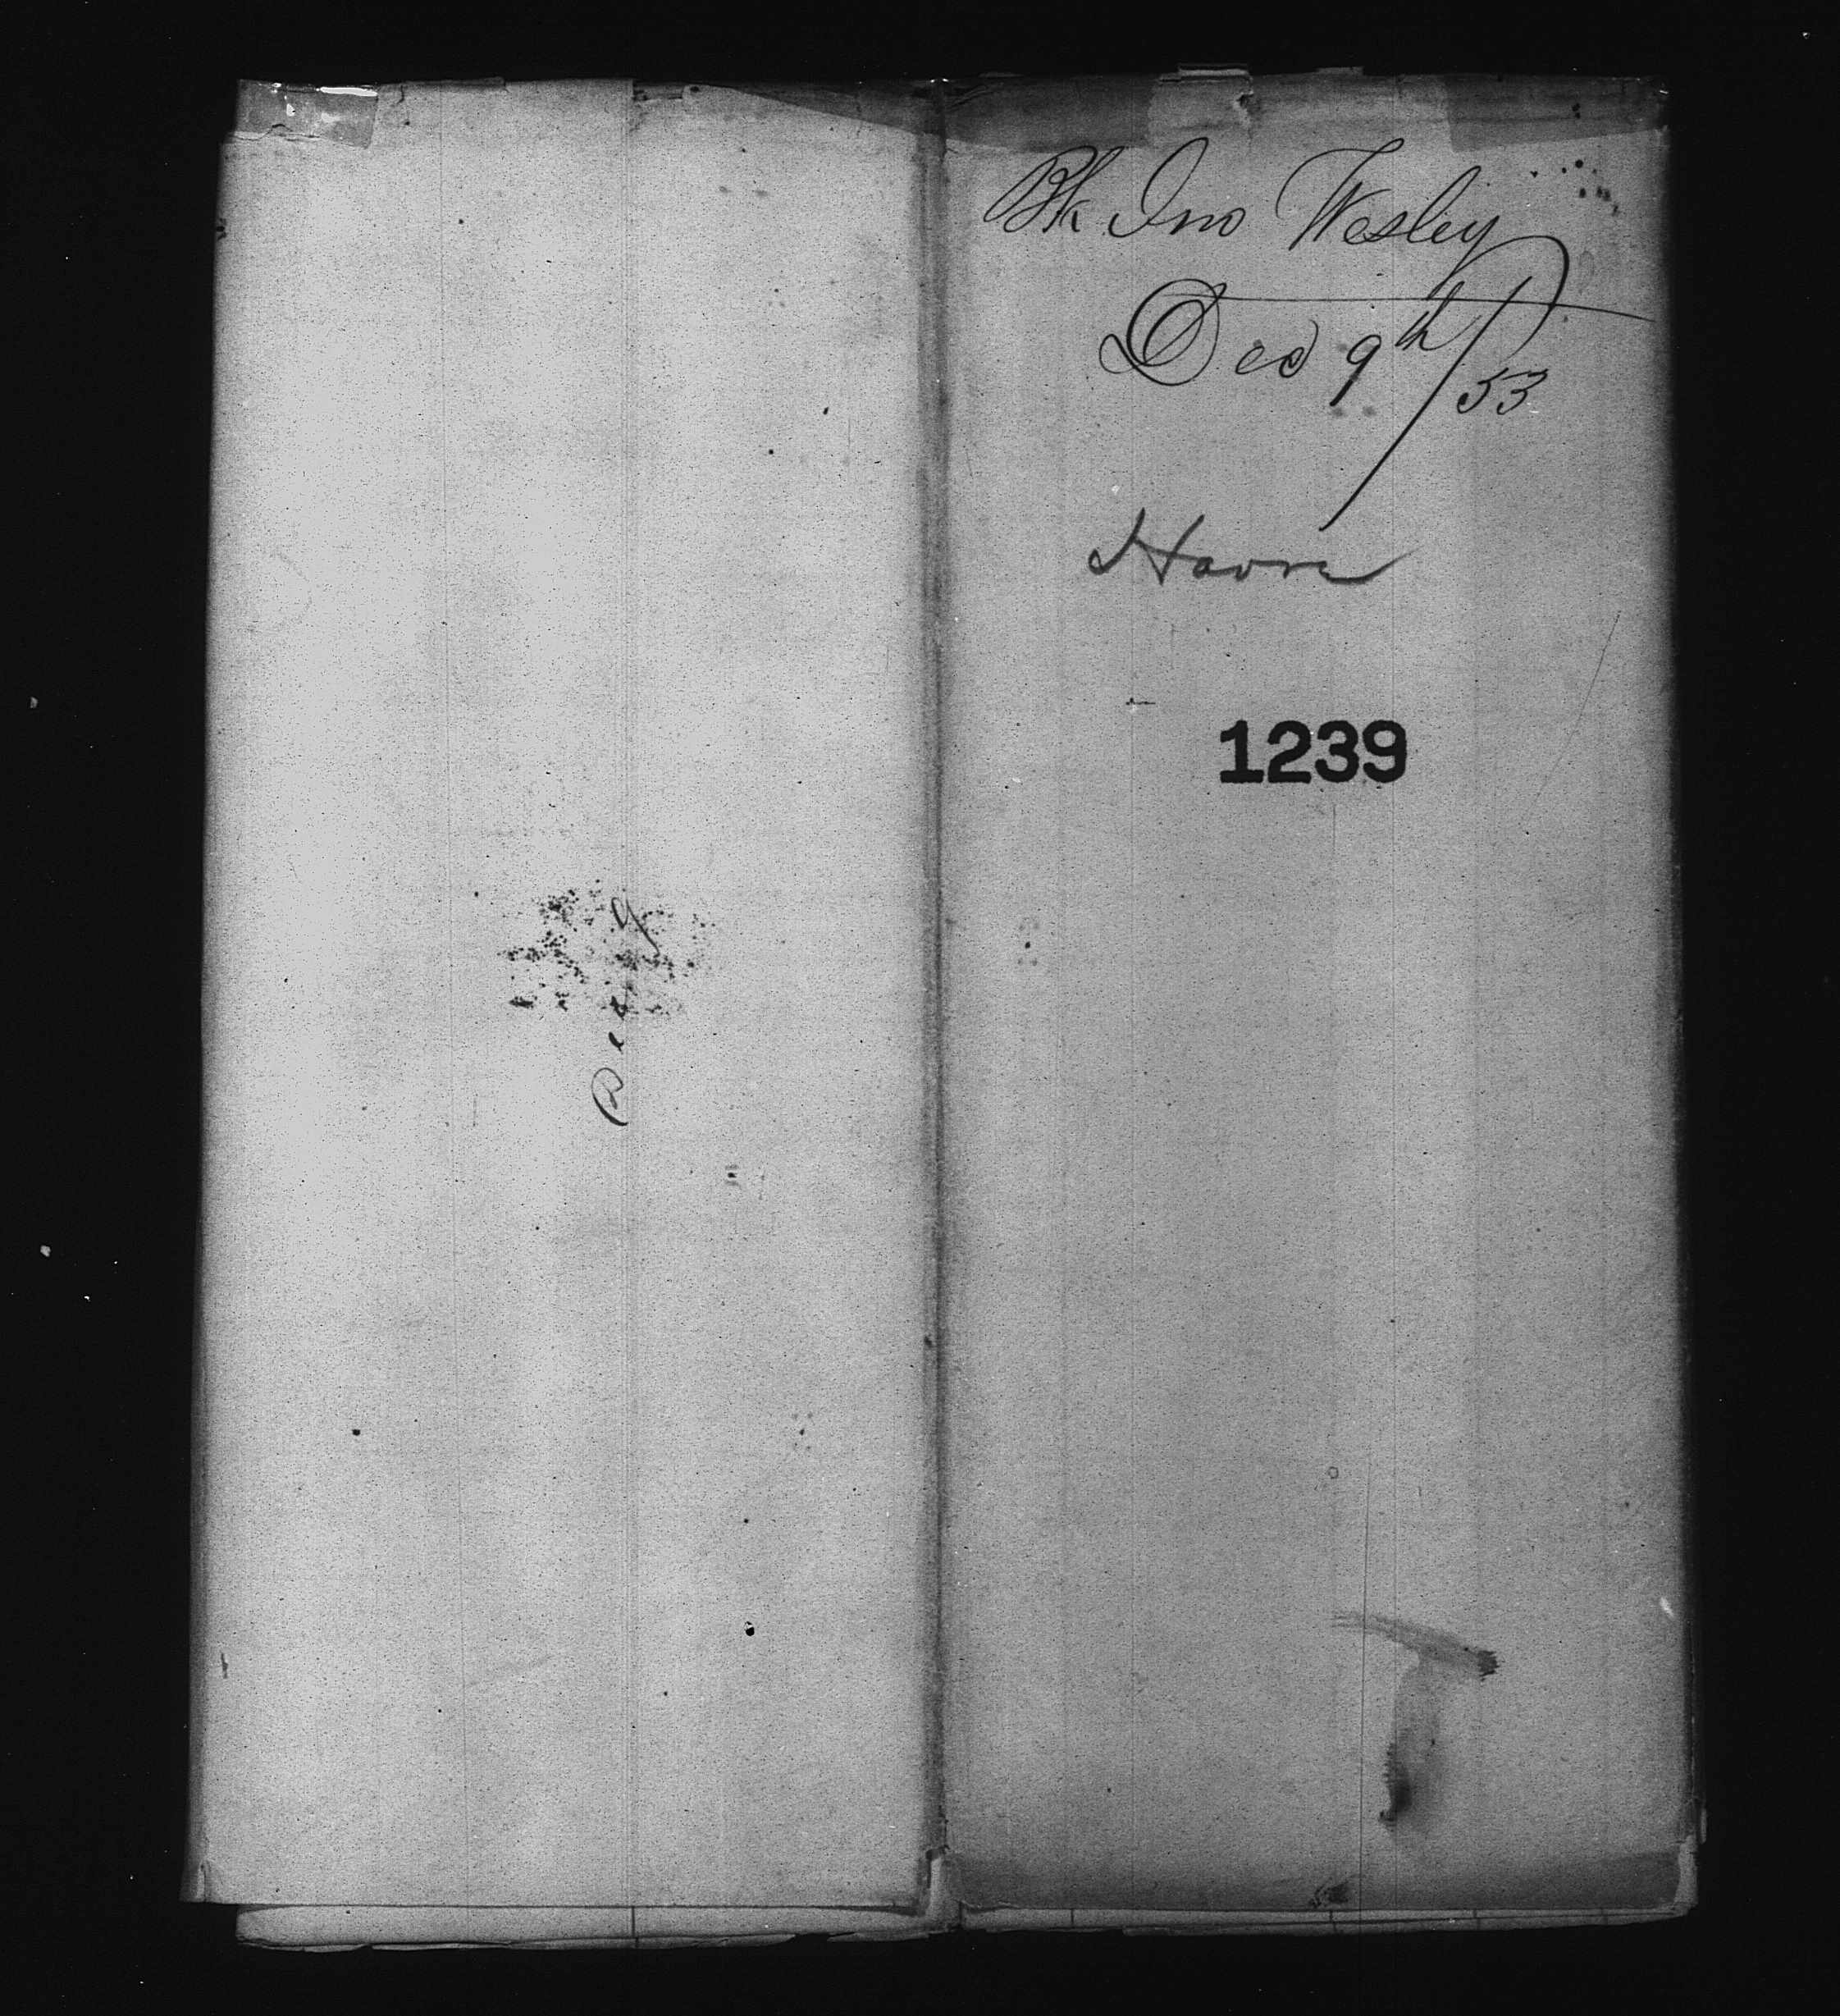 Dec 9
Bk Jno Wesley
Dec 9th/53
Havre
1239